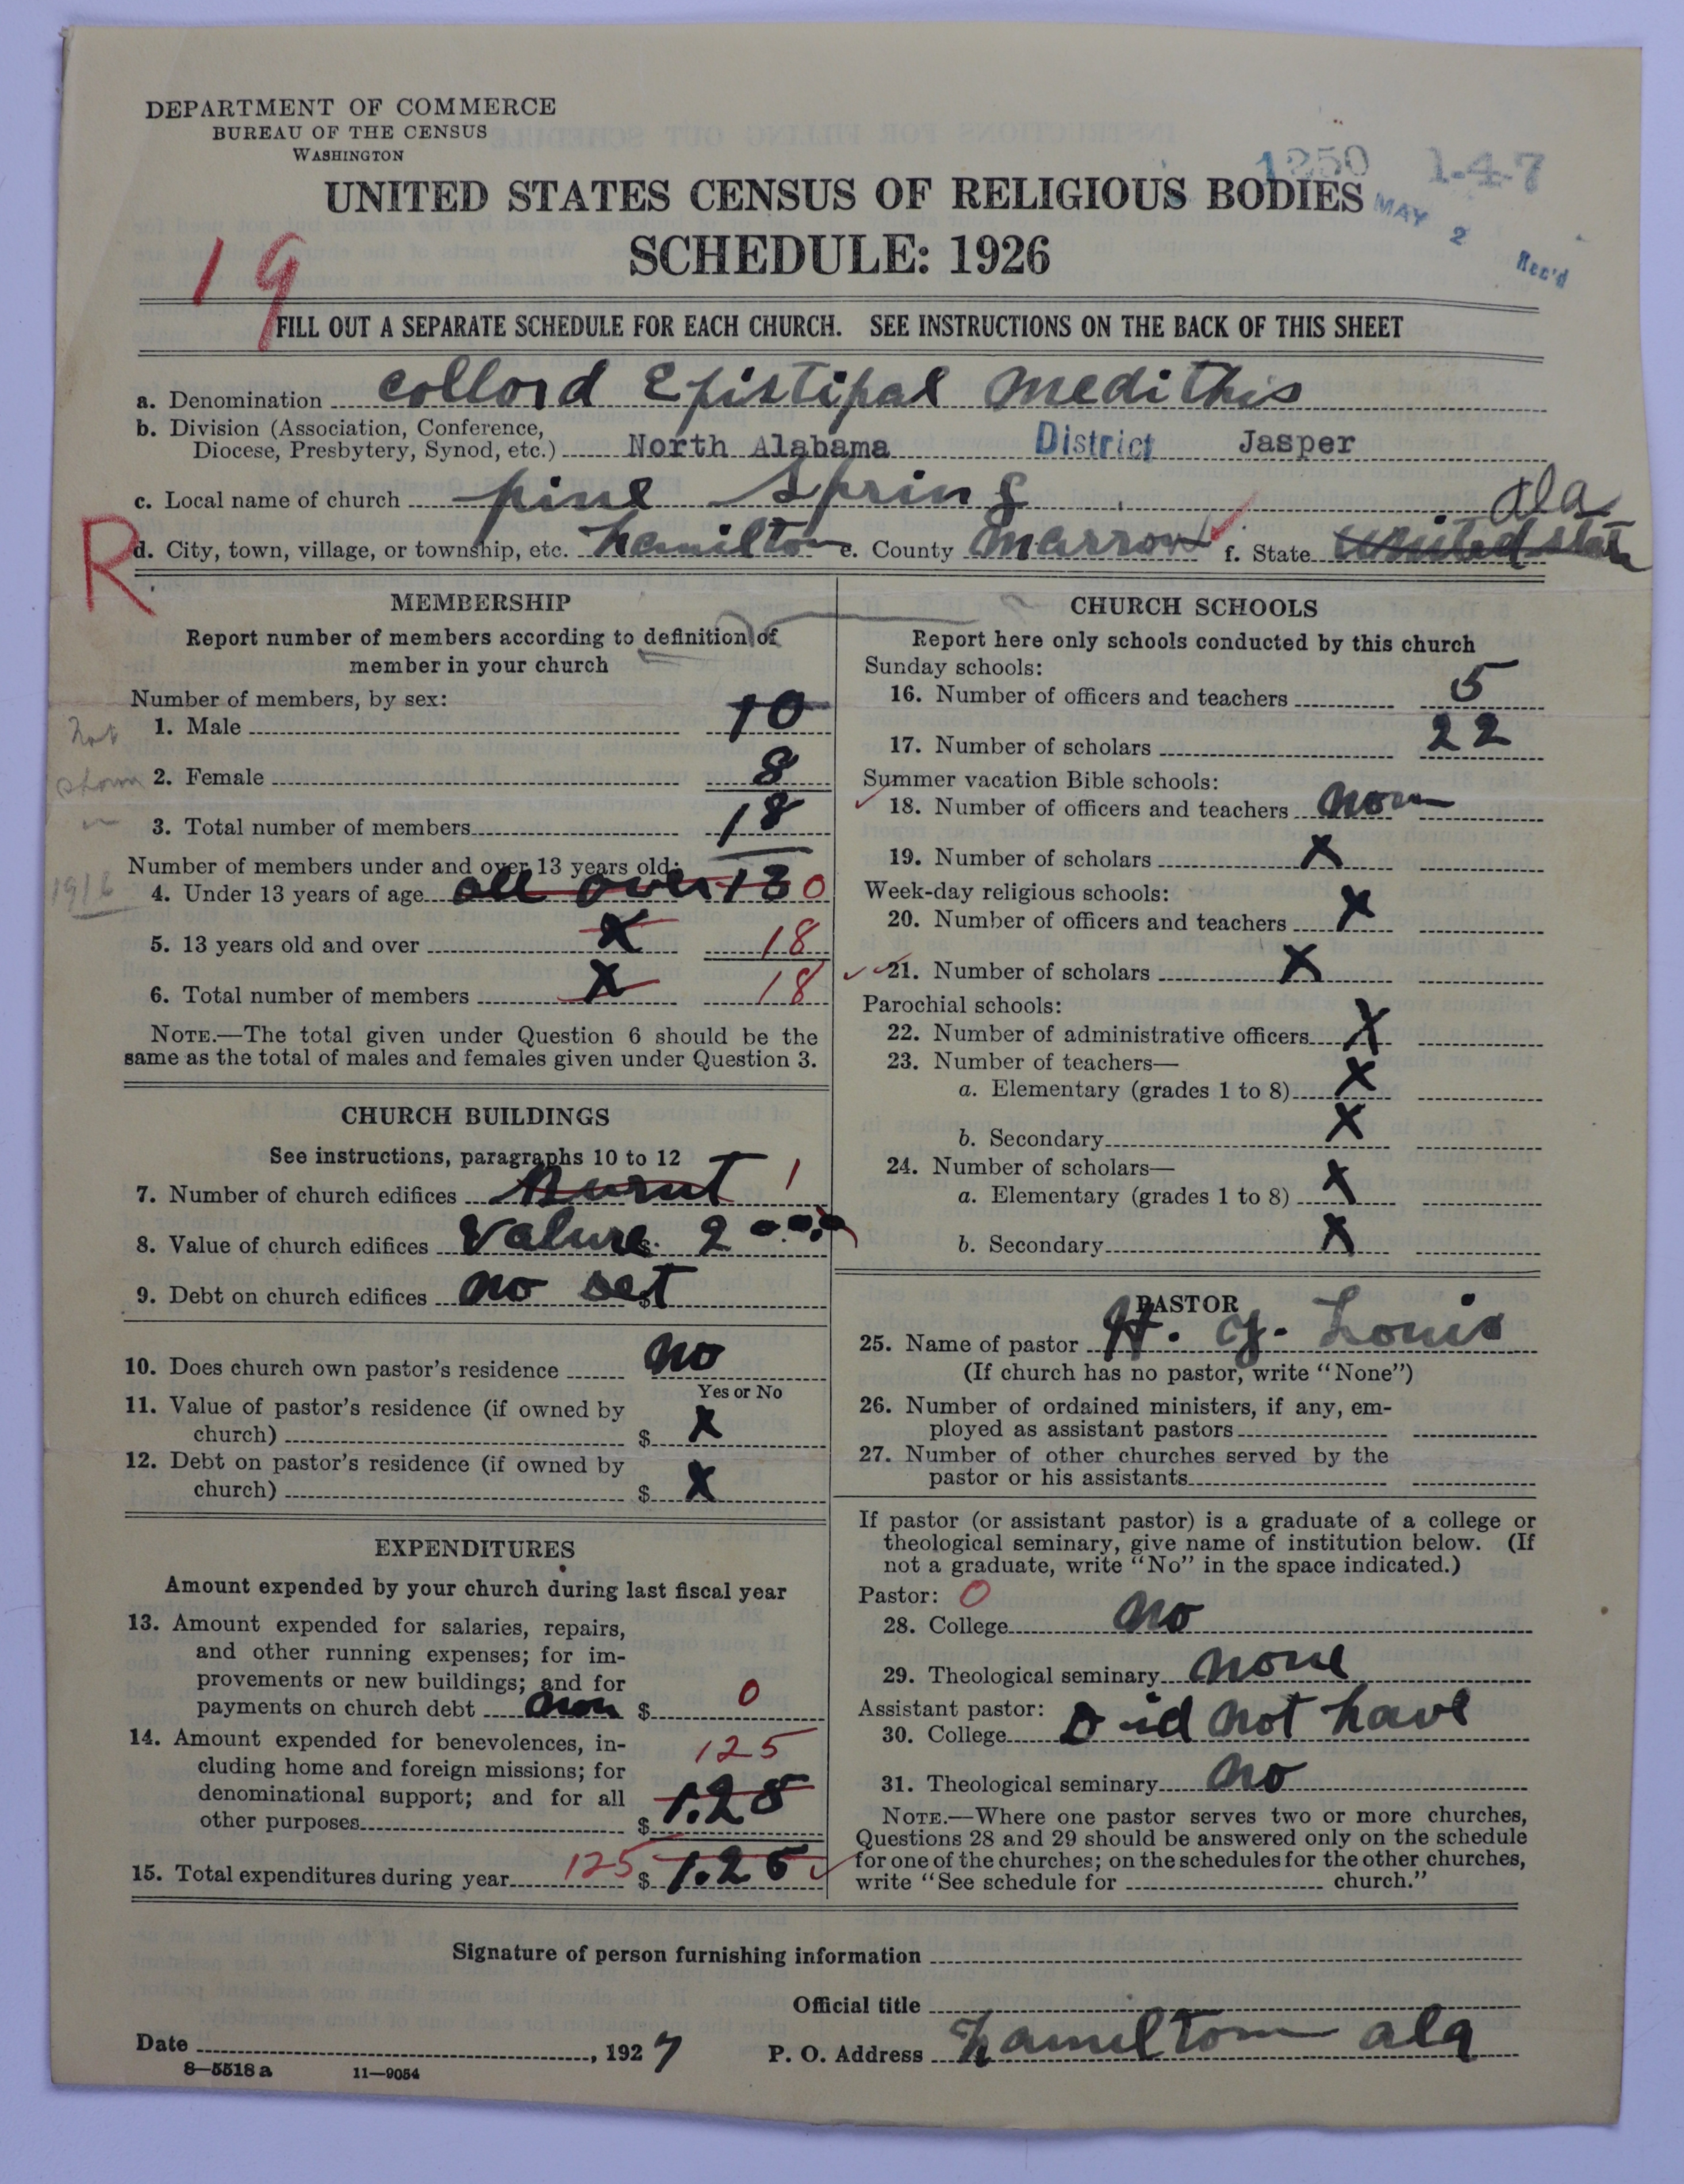 DEPARTMENT OF COMMERCE
BUREAU OF THE CENSUS
WASHINGTON
1250 1-4-7
UNITED STATES CENSUS OF RELIGIOUS BODIES
MAY 2 Rec'd
SCHEDULE: 1926
19
FILL OUT A SEPARATE SCHEDULE FOR EACH CHURCH. SEE INSTRUCTIONS ON THE BACK OF THIS SHEET
a. Denomination collord Epistipal medithis
b. Division (Association, Conference,
Diocese, Presbytery, Synod, etc.) North Alabama District Jasper
c. Local name of church pine Spring
Ala
R
d. City, town, village, or township, etc. hamilton e. County Marrow f. State United State
MEMBERSHIP
Report number of members according to definition of
member in your church
Number of members, by sex:
1. Male 10
not
2. Female 8
shown
3. Total number of members 18
Number of members under and over 13 years old:
1916
4. Under 13 years of age all over 13 0
5. 13 years old and over X 18
6. Total number of members X 18
NOTE.—The total given under Question 6 should be the
same as the total of males and females given under Question 3.
CHURCH BUILDINGS
See instructions, paragraphs 10 to 12
7. Number of church edifices Burnt 1
8. Value of church edifices Valure $ 2 00.00
9. Debt on church edifices no det $
10. Does church own pastor's residence no
Yes or No
11. Value of pastor's residence (if owned by
church) $ X
12. Debt on pastor's residence (if owned by
church) $ X
EXPENDITURES
Amount expended by your church during last fiscal year
13. Amount expended for salaries, repairs,
and other running expenses; for im-
provements or new buildings; and for
payments on church debt non $ 0
14. Amount expended for benevolences, in- 125
cluding home and foreign missions; for
denominational support; and for all
other purposes $ 1.25
15. Total expenditures during year 125 $ 1.25
CHURCH SCHOOLS
Report here only schools conducted by this church
Sunday schools:
16. Number of officers and teachers 5
17. Number of scholars 22
Summer vacation Bible schools:
18. Number of officers and teachers non
19. Number of scholars X
Week-day religious schools:
20. Number of officers and teachers X
21. Number of scholars X
Parochial schools:
22. Number of administrative officers X
23. Number of teachers—
a. Elementary (grades 1 to 8) X
b. Secondary X
24. Number of scholars—
a. Elementary (grades 1 to 8) X
b. Secondary X
PASTOR
25. Name of pastor H. Y. Louis
(If church has no pastor, write "None")
26. Number of ordained ministers, if any, em-
ployed as assistant pastors
27. Number of other churches served by the
pastor or his assistants
If pastor (or assistant pastor) is a graduate of a college or
theological seminary, give name of institution below. (If
not a graduate, write "No" in the space indicated.)
Pastor: 0
28. College no
29. Theological seminary none
Assistant pastor:
30. College Did not have
31. Theological seminary no
NOTE.—Where one pastor serves two or more churches,
Questions 28 and 29 should be answered only on the schedule
for one of the churches; on the schedules for the other churches,
write "See schedule for church."
Signature of person furnishing information
Official title
Date , 1927 P. O. Address hamilton ala
8—5518 a 11—9054